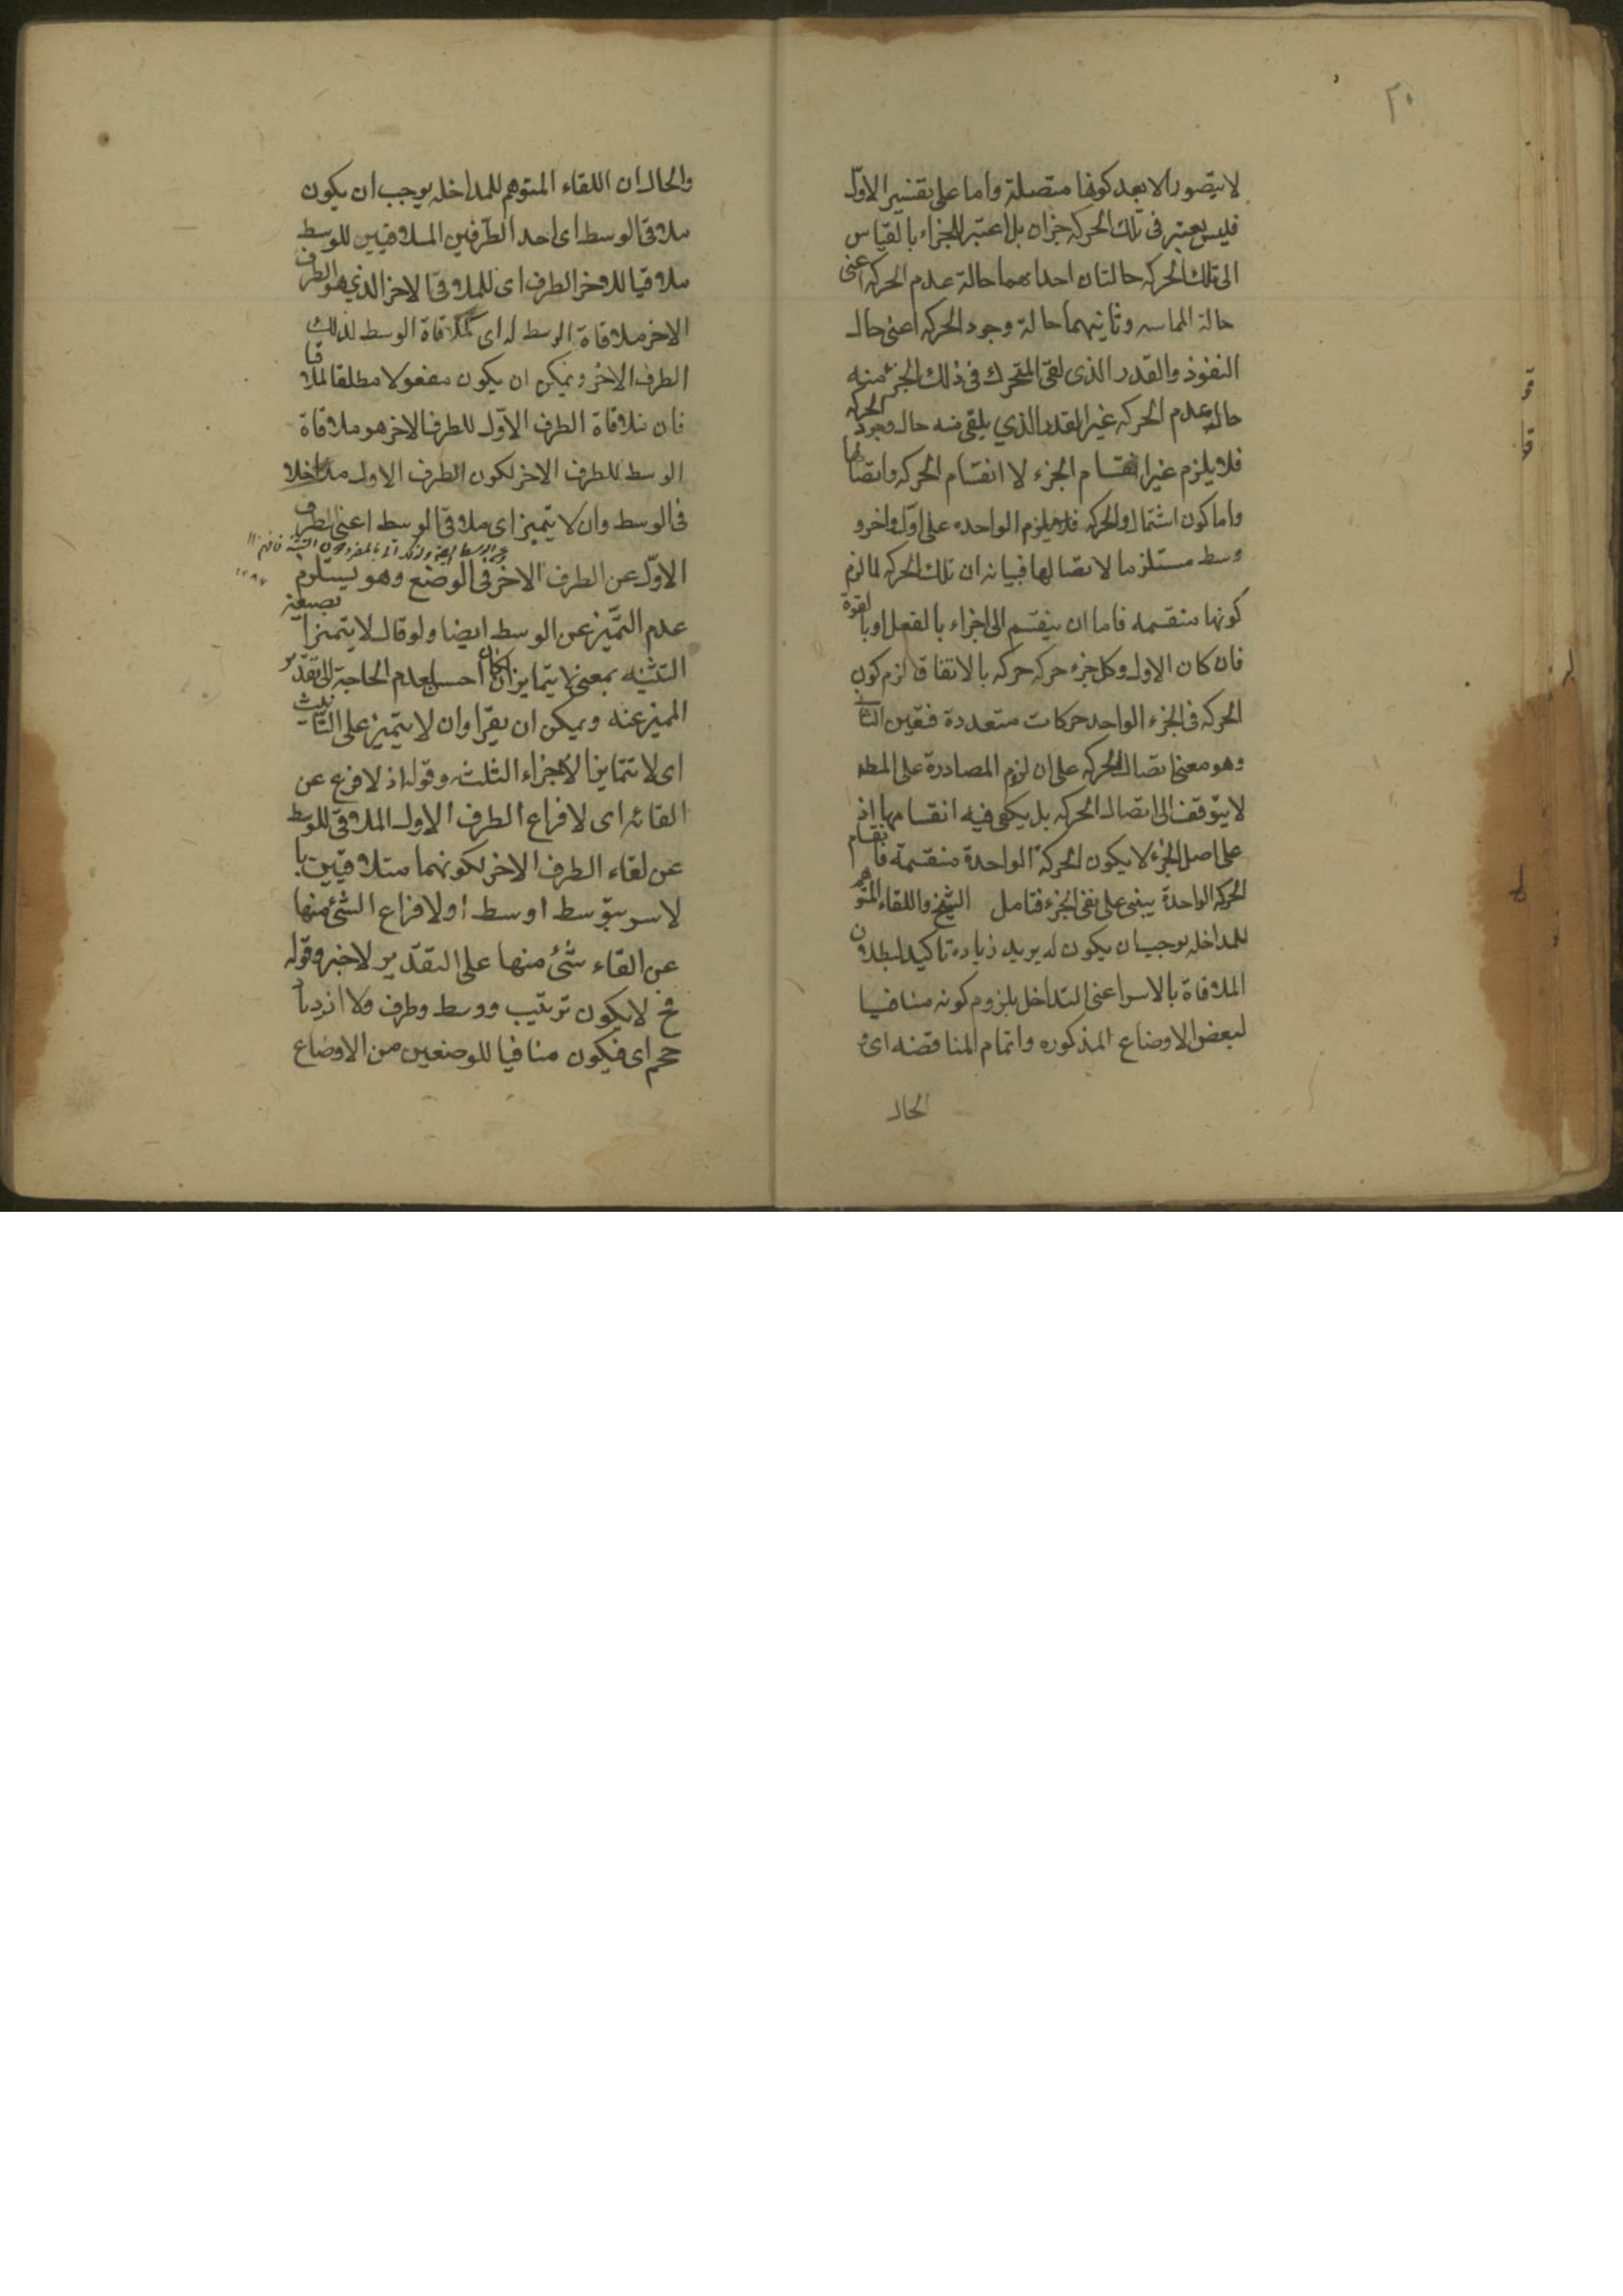 ٢٠
لا يتصور الا بعد كونها متصلة واما على تفسير الاول
فليس يعتبر فى تلك الحركه جزان بل اعتبر للجزء بالقياس
الى تلك الحركه حالتان احداهما حالة عدم الحركه اعنى
حالة المماسه وثانيهما حالة وجود الحركه اعنى حال
النفوذ والقدر الذى لقى المتحرك فى ذلك الجزء منه
حالة عدم الحركه غير القدر الذي يلقى منه حال وجود الحركه
فلا يلزم غير انقسام الجزء لا انقسام الحركه واتصالها
واما كون اشتمال الحركه الواحده على اول واخر و
وسط مستلزما لاتصالها فبيانه ان تلك الحركه لما لزم
كونها منقسمه فاما ان ينقسم الى اجزاء بالفعل او بالقوة
فان كان الاول وكل جزء حركه حركه بالاتفاق لزم كون
الحركه فى الجزء الواحد حركات متعددة فتعين الثانى
وهو معنى اتصال الحركه على ان لزوم المصادرة على المط
لا يتوقف الى اتصال الحركه بل يكفى فيه انقسامها اذ
على اصل الجزء لا يكون الحركة الواحدة منقسمة فانقسام
الحركة الواحدة يبنى على نفى الجزء فتامل الشيخ واللقاء المتوهم
للمداخله يوجب ان يكون له يريد زيادة تاكيد لبطلان
الملاقاة بالاسر اعنى التداخل بلزوم كونه منافيا
لبعض الاوضاع المذكوره واتمام المناقضه اى و
الحال
والحال ان اللقاء المتوهم للمداخله يوجب ان يكون
ملاقى الوسط اى احد الطرفين الملاقيين للوسط
ملاقيا للاخر الطرف اى للملاقى الاخر الذي هو الطرف
الاخر ملاقاة الوسط له اى كملاقاة الوسط لذلك
الطرف الاخر ويمكن ان يكون مفعولا مطلقا لملاقيا
فان ملاقاة الطرف الاول للطرف الاخر هو ملاقاة
الوسط للطرف الاخر لكون الطرف الاول مداخلا
فى الوسط وان لا يتميز اى ملاقى الوسط اعنى الطرف
الاول عن الطرف الاخر فى الوضع وهو يستلزم
عدم التميز عن الوسط ايضا ولو قال لا يتميزا بصيغة
التثنيه بمعنى لا يتمايزان لكان احسن لعدم الحاجة الى تقدير
المميز عنه ويمكن ان يقرا وان لا يتميز على التانيث
اى لا تتمايز الاجزاء الثلثه وقوله اذ لا فراغ عن
القائه اى لا فراغ الطرف الاول الملاقى للوسط
عن لقاء الطرف الاخر لكونهما متلاقيين با
لاسر بتوسط اوسط او لا فراغ الشئ منها
عن القاء شئ منها على التقدير لاخير وقوله
فح لا يكون ترتيب ووسط وطرف ولا ازدياد
حجم اى فيكون منافيا للوضعين من الاوضاع